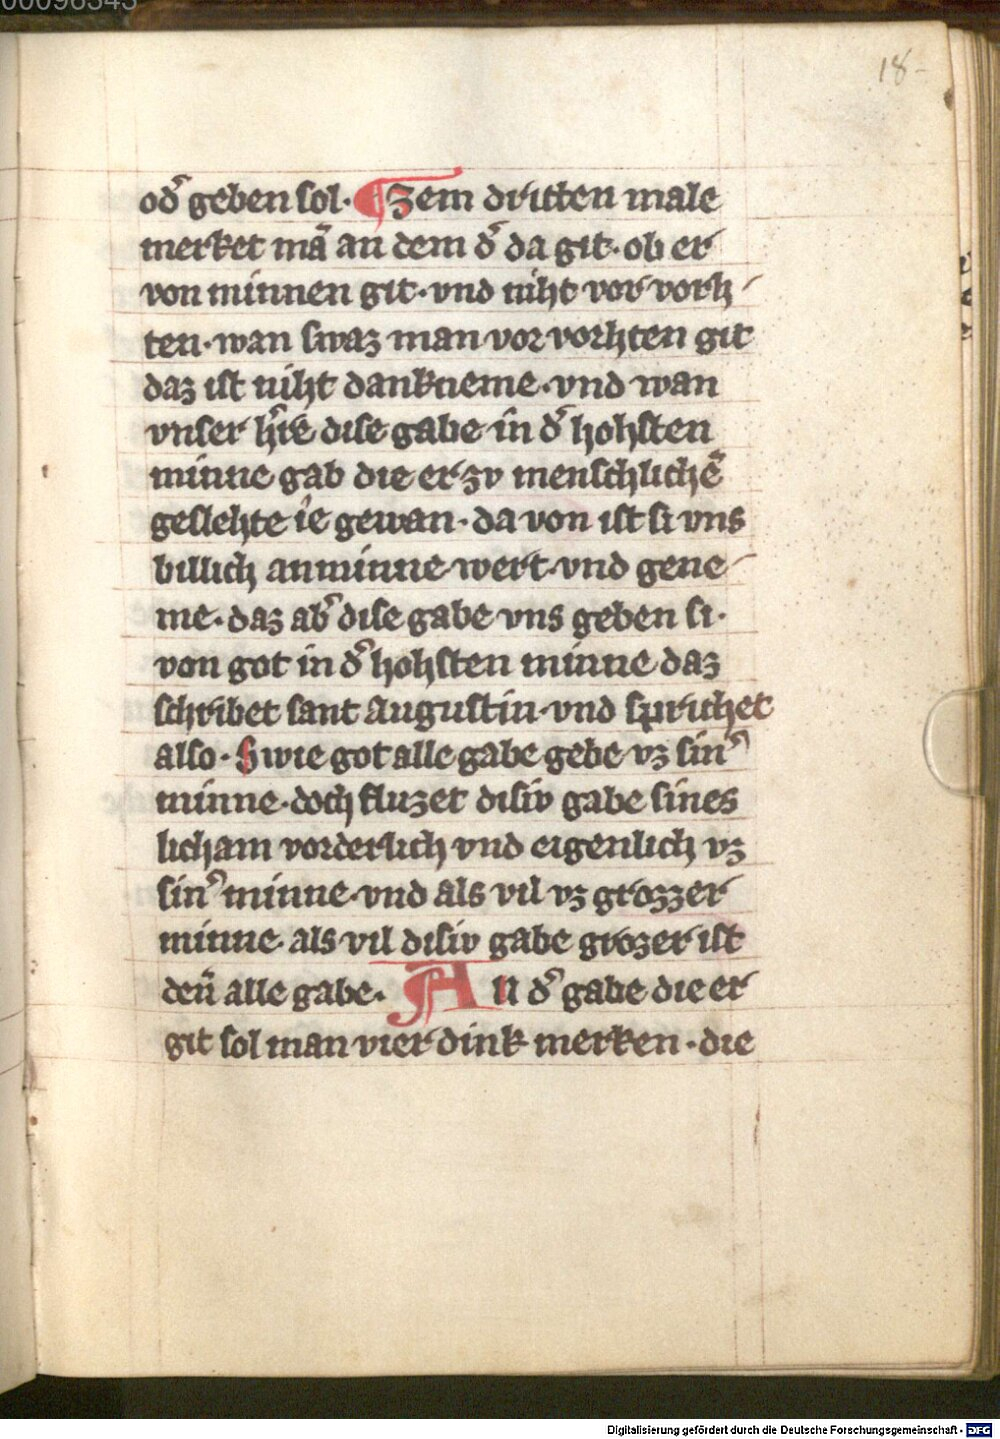 18
od̕ geben sol· ¶ Zem dritten male
merket mā an dem d̕ da git· ob er
von minnen git· vnd niht vor vorh
ten· wan swaz man vor vorhten git
daz ist niht dankneme· vnd wan
vnser h̕re dise gabe in d̕ hohsten
minne gab die er zv menschlichē
geslehte ie gewan· da von ist si vns
billich an minne wert vnd gene
me· daz ab̕ dise gabe vns geben si·
von got in d̕ hohsten minne daz
schribet sant Augustin· vnd sprichet
also· Swie got alle gabe gebe vz sin̕
minne· doch fluzet disiv gabe sines
licham vorderlich vnd eigenlich vz
sin̕ minne· vnd als vil vz grozzer
minne· als vil disiv gabe grozer ist
den̄ alle gabe· All d̕ gabe die er
git sol man vier dink merken· die
Digitalisierung gefördert durch die Deutsche Forschungsgemeinschaft - DFG